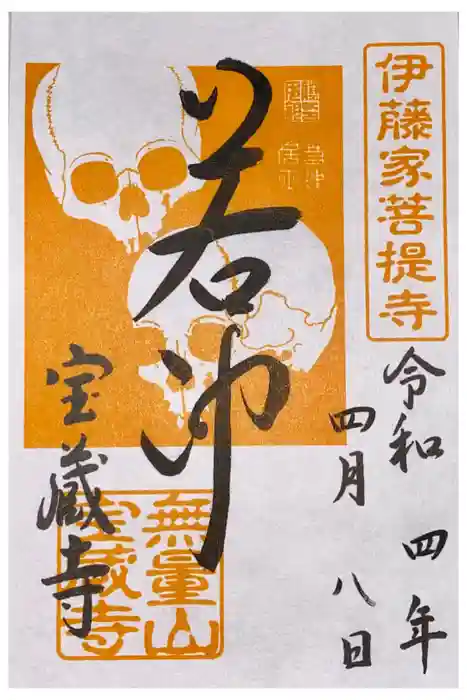 伊藤家菩提寺
令和四年
四月八日
若冲
宝蔵寺
無量山
宝蔵寺